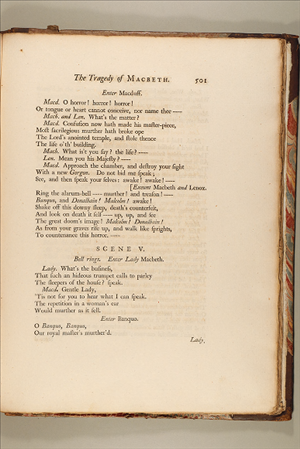 The Tragedy of MACBETH. 501
Enter Macduff.
Macd. O horror! horror! horror!
Or tongue or heart cannot conceive, nor name thee ——
Macb. and Len. What's the matter?
Macd. Confusion now hath made his master-piece,
Most sacrilegious murther hath broke ope
The Lord's anointed temple, and stole thence
The life o'th' building.
Macb. What is't you say? the life? ——
Len. Mean you his Majesty? ——
Macd. Approach the chamber, and destroy your sight
With a new Gorgon. Do not bid me speak;
See, and then speak your selves: awake! awake! ——
[Exeunt Macbeth and Lenox.
Ring the alarum-bell —— murther! and treason! ——
Banquo, and Donalbain! Malcolm! awake!
Shake off this downy sleep, death's counterfeit,
And look on death it self —— up, up, and see
The great doom's image! Malcolm! Donalbain!
As from your graves rise up, and walk like sprights,
To countenance this horror. ——
SCENE V.
Bell rings. Enter Lady Macbeth.
Lady. What's the business,
That such an hideous trumpet calls to parley
The sleepers of the house? speak.
Macd. Gentle Lady,
'Tis not for you to hear what I can speak.
The repetition in a woman's ear
Would murther as it fell.
Enter Banquo.
O Banquo, Banquo,
Our royal master's murther'd.
Lady,